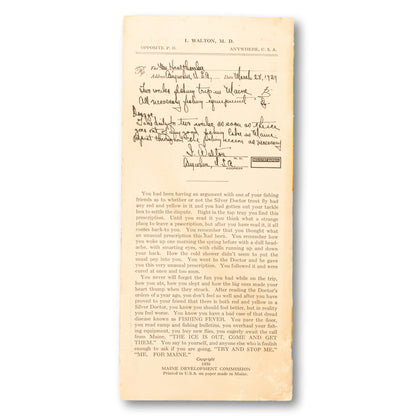 I. WALTON, M. D.
OPPOSITE P. O. ANYWHERE, U. S. A.
Anywhere, U.S.A. March 28, 1929
Two weeks fishing trip in Maine
All necessary fishing equipment
as soon as the ice
goes out of any good fishing lake in Maine
Repeat throughout the fishing season as necessary
I. Walton M. D.
Anywhere, U.S.A.
ADDRESS
You had been having an argument with one of your fishing
friends as to whether or not the Silver Doctor trout fly had
any red and yellow in it and you had gotten out your tackle
box to settle the dispute. Right in the top tray you find this
prescription. Until you read it you think what a strange
place to leave a prescription, but after you have read it, it all
comes back to you. You remember that you thought what
an unusual prescription this had been. You remember how
you woke up one morning the spring before with a dull head-
ache, with smarting eyes, with chills running up and down
your back. How the cold shower didn't seem to put the
usual pep into you. You went to the Doctor and he gave
you this very unusual prescription. You followed it and were
cured at once and too soon.
You never will forget the fun you had while on the trip,
how you ate, how you slept and how the big ones made your
heart thump when they struck. After reading the Doctor's
orders of a year ago, you don't feel so well and after you have
proved to your friend that there is both red and yellow in a
Silver Doctor, you know you should feel better, but in reality
you feel worse. You know you have a bad case of that dread
disease known as FISHING FEVER. You pace the floor,
you read camp and fishing bulletins, you overhaul your fish-
ing equipment, you buy new flies, you eagerly await the call
from Maine, "THE ICE IS OUT, COME AND GET
THEM." You say to yourself, and anyone else who is foolish
enough to ask if you are going, "TRY AND STOP ME."
"ME, FOR MAINE."
Copyright
1930
MAINE DEVELOPMENT COMMISSION
Printed in U.S.A. on paper made in Maine.